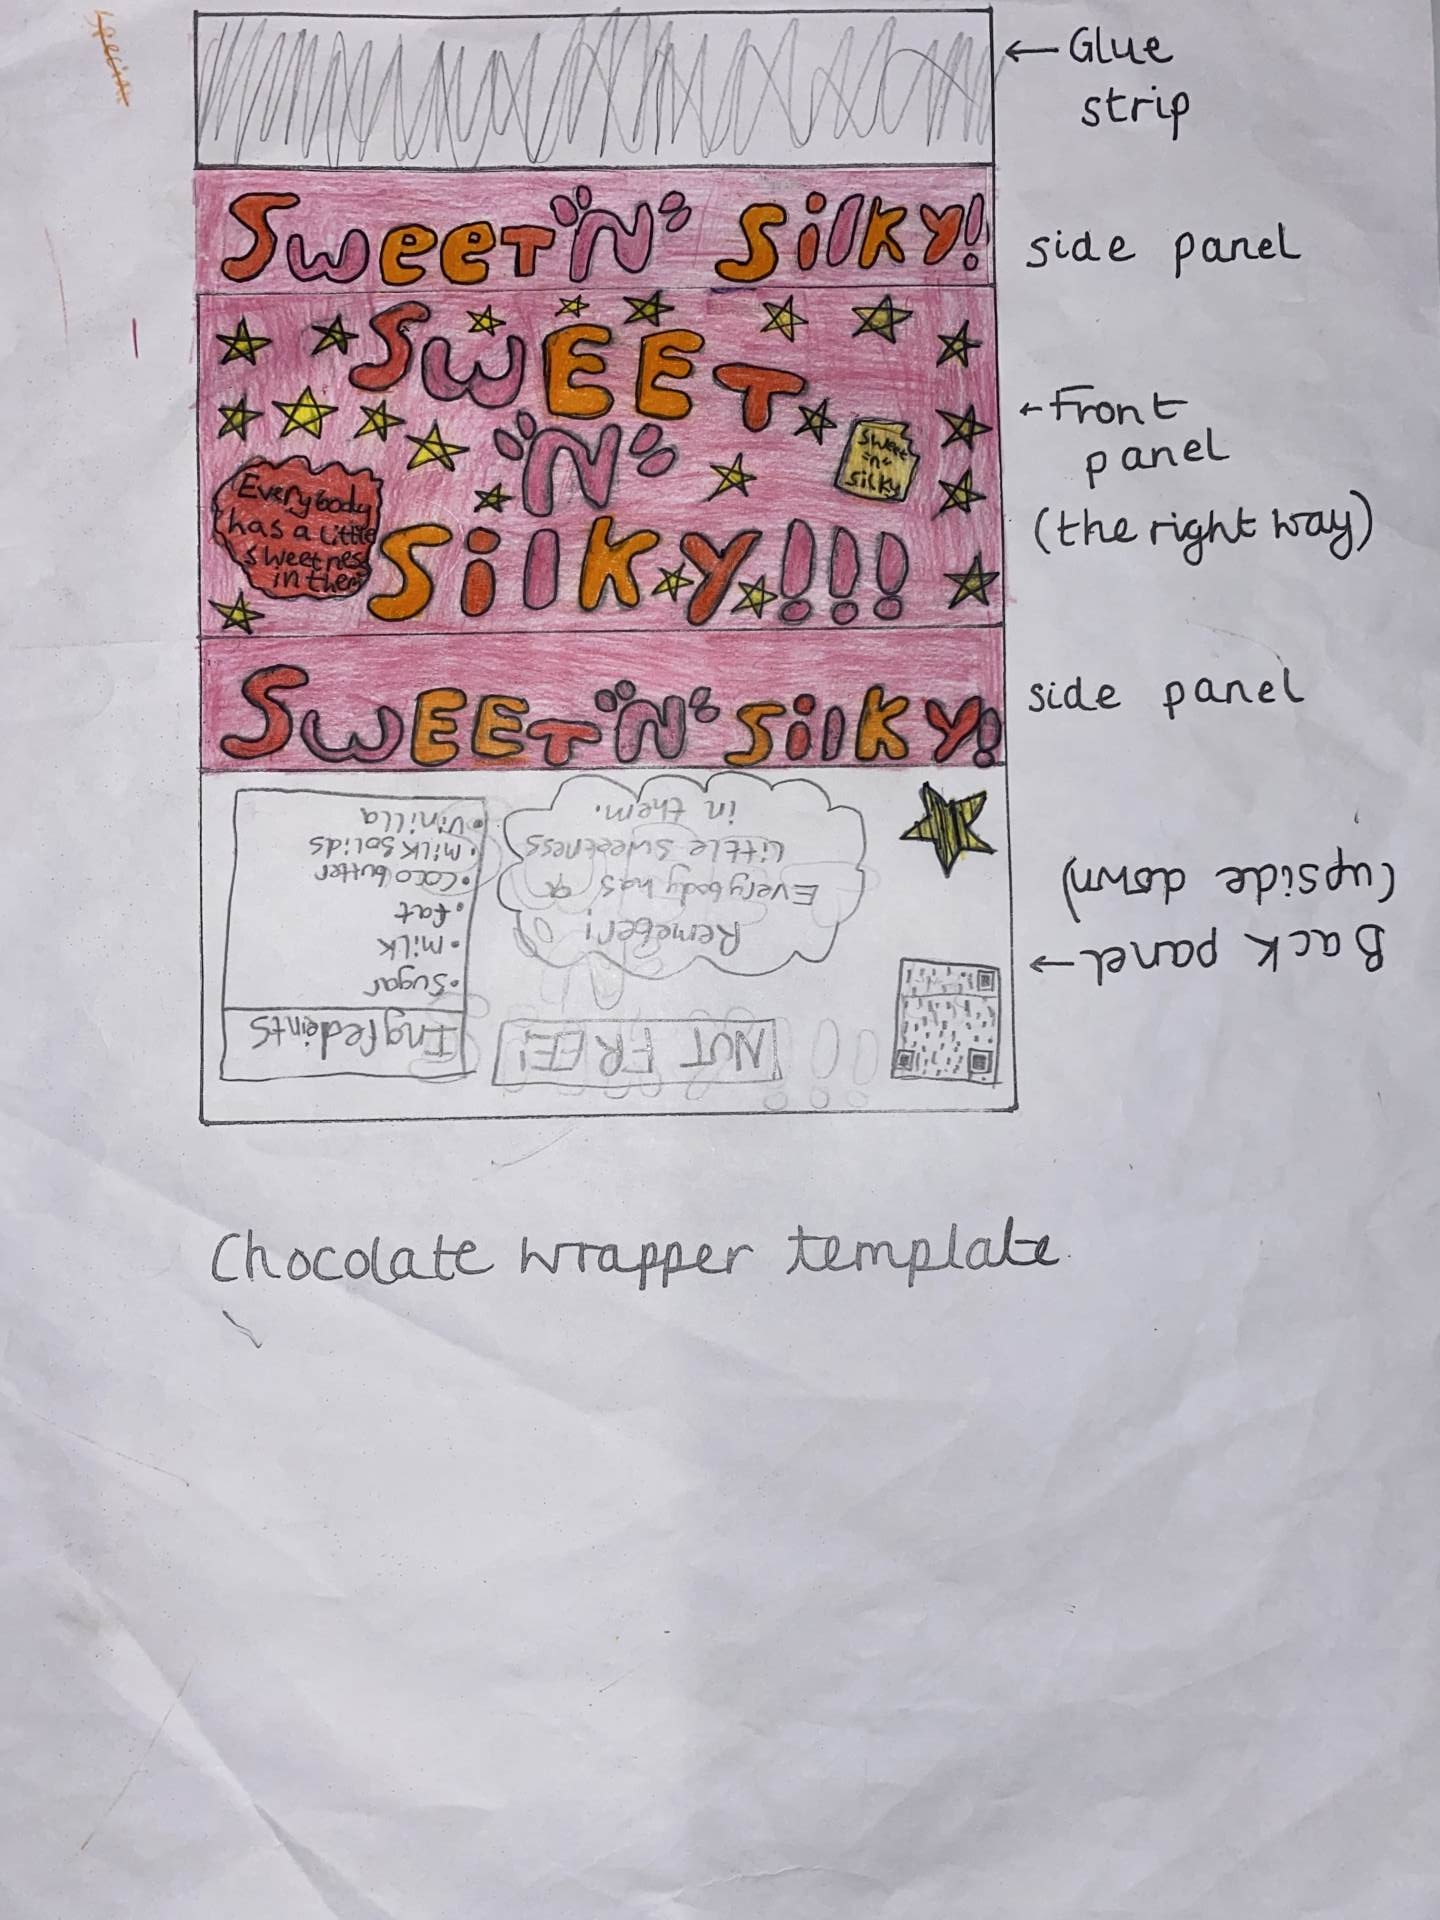 ← Glue
strip
Sweet "N" Silky!
side panel
SWEET
"N"
Silky!!!
Everybody
has a little
sweetness
in them
Sweet
"n"
Silky
← Front
panel
(the right way)
SWEET "N" Silky!
side panel
Back panel →
(upside down)
Ingredeints
• Sugar
• Milk
• fat
• Coco butter
• Milk solids
• Vinilla
NUT FREE!
Remeber!
Everybody has a
little sweetness
in them.
Chocolate wrapper template